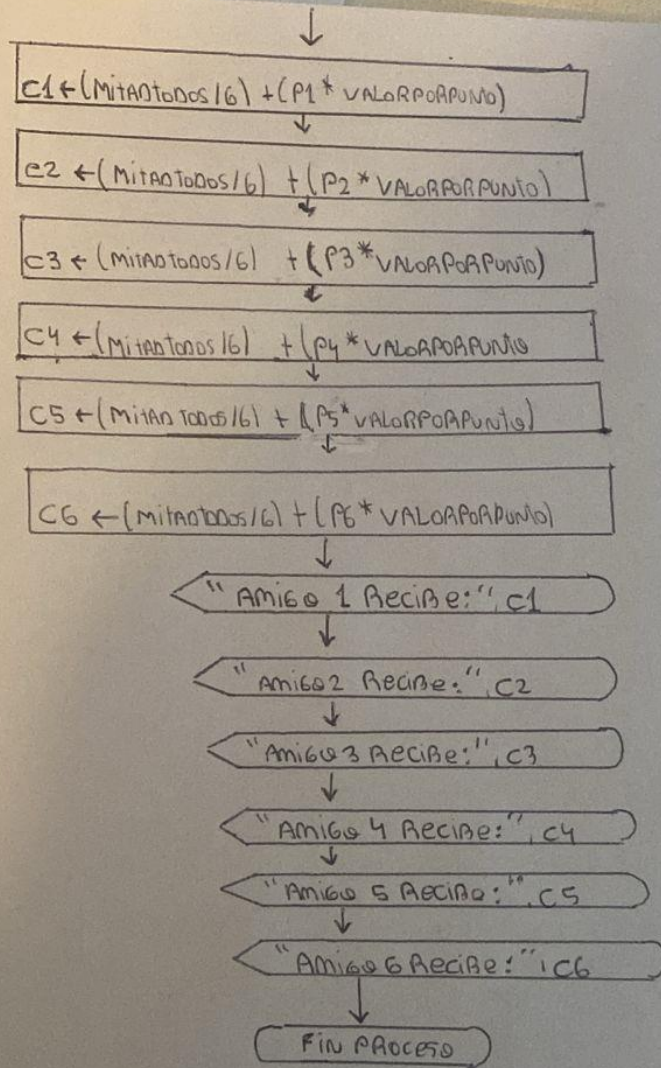 C1 ← (MITADTODOS/6) + (P1 * VALORPORPUNTO)
C2 ← (MITADTODOS/6) + (P2 * VALORPORPUNTO)
C3 ← (MITADTODOS/6) + (P3 * VALORPORPUNTO)
C4 ← (MITADTODOS/6) + (P4 * VALORPORPUNTO
C5 ← (MITADTODOS/6) + (P5 * VALORPORPUNTO)
C6 ← (MITADTODOS/6) + (P6 * VALORPORPUNTO)
"AMIGO 1 RECIBE:", C1
"AMIGO 2 RECIBE:", C2
"AMIGO 3 RECIBE:", C3
"AMIGO 4 RECIBE:", C4
"AMIGO 5 RECIBE:", C5
"AMIGO 6 RECIBE:", C6
FIN PROCESO